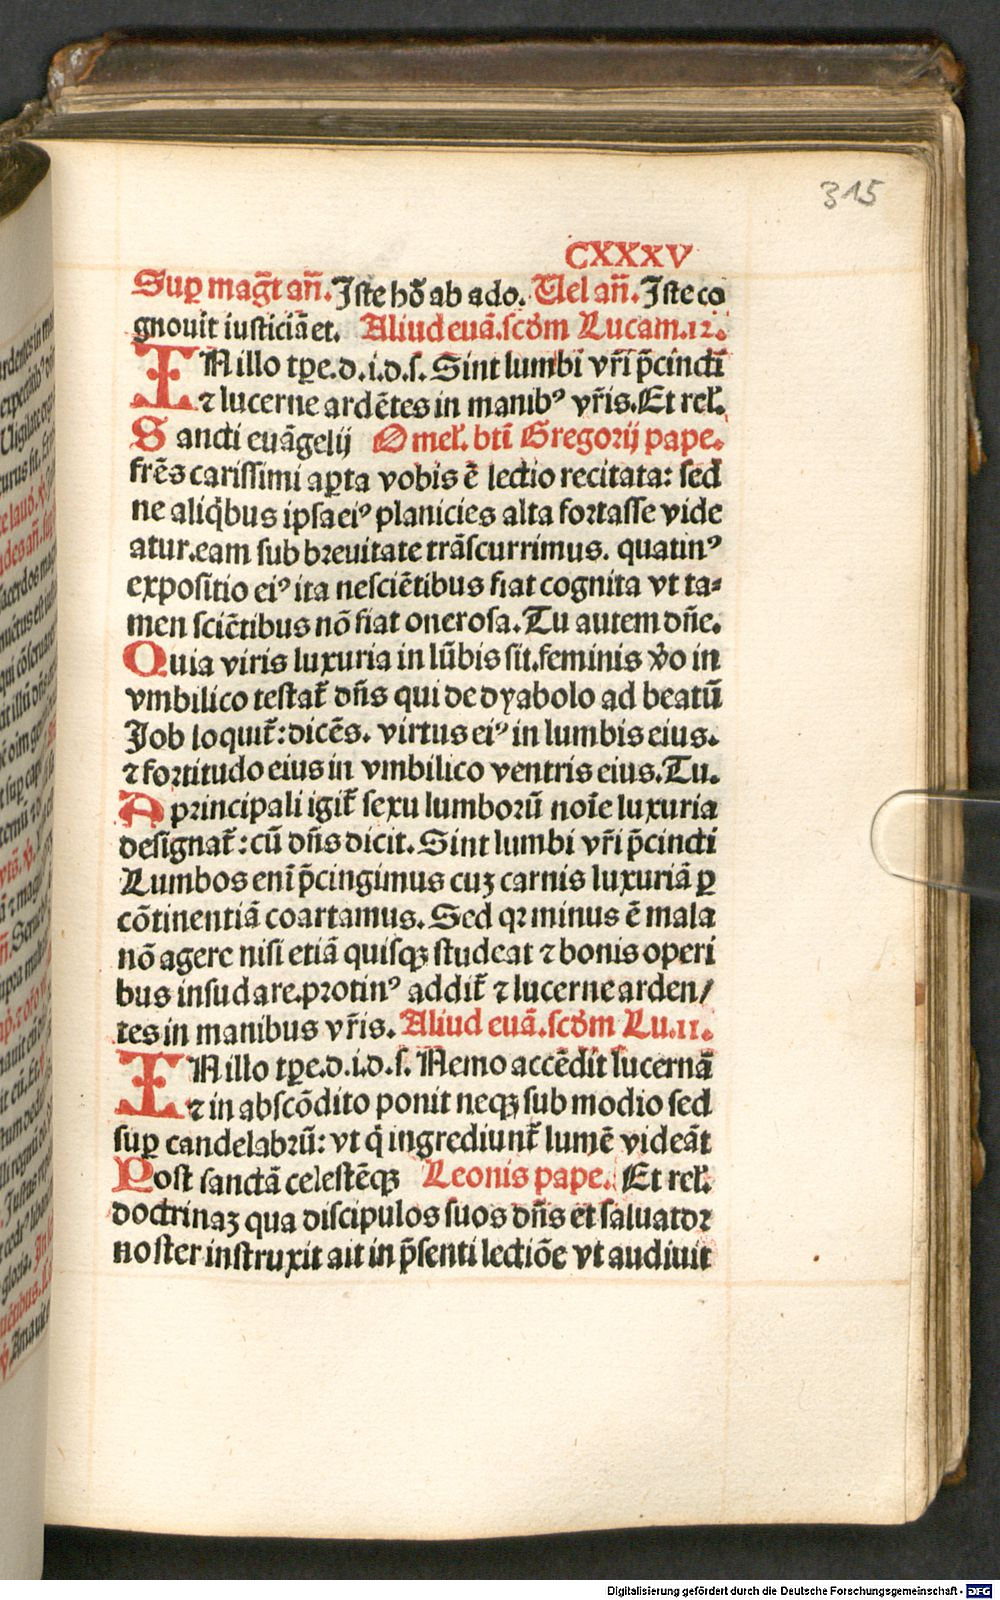 315
CXXXV
Sup magt̄ an̄. Iste hō ab ado. Uel an̄. Iste co
gnouit iusticiā et. Aliud euā. scdm Lucam. 12.
IN illo tpe. d. i. d. s. Sint lumbi vr̄i p̄cincti
⁊ lucerne ardētes in manibꝰ vr̄is. Et rel̄.
Sancti euāgelij Omel̄. bti Gregorij pape.
frēs carissimi aꝑta vobis ē lectio recitata: sed
ne aliq̄bus ipsa eiꝰ planicies alta fortasse vide
atur. eam sub breuitate trāscurrimus. quatinꝰ
expositio eiꝰ ita nesciētibus fiat cognita vt ta⸗
men sciētibus nō fiat onerosa. Tu autem dn̄e.
Quia viris luxuria in lūbis sit. feminis v̄o in
vmbilico testat̄ dn̄s qui de dyabolo ad beatū
Job loquit̄: dicēs. virtus eiꝰ in lumbis eius.
⁊ fortitudo eius in vmbilico ventris eius. Tu.
A principali igit̄ sexu lumborū noīe luxuria
designat̄: cū dn̄s dicit. Sint lumbi vr̄i p̄cincti
Lumbos enī p̄cingimus cuʒ carnis luxuriā ꝑ
cōtinentiā coartamus. Sed qꝛ minus ē mala
nō agere nisi etiā quisqꝫ studeat ⁊ bonis operi
bus insudare. protinꝰ addit̄ ⁊ lucerne arden/
tes in manibus vr̄is. Aliud euā. scdm Lu. 11.
IN illo tpe. d. i. d. s. Nemo accēdit lucernā
⁊ in abscōdito ponit neqꝫ sub modio sed
suꝑ candelabrū: vt q̄ ingrediunt̄ lumē videāt
Post sanctā celestēqꝫ Leonis pape. Et rel̄.
doctrinaʒ qua discipulos suos dn̄s et saluator
noster instruxit ait in p̄senti lectiōe vt audiuit
Digitalisierung gefördert durch die Deutsche Forschungsgemeinschaft - DFG